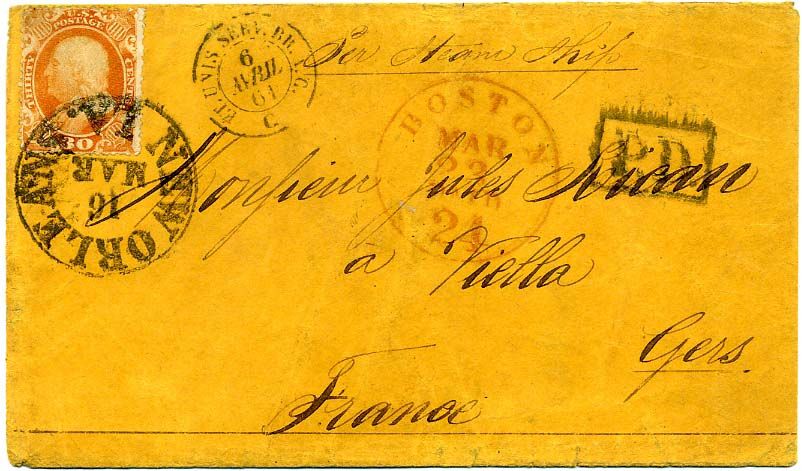 U.S. POSTAGE
THIRTY CENTS
30
ET. UNIS SERV. BR. A.C.
6
AVRIL
61
C
Per Steam Ship
NEW ORLEANS LA
MAR
16
BOSTON
MAR
24
P.D.
Monsieur Jules
à Viella
Gers.
France